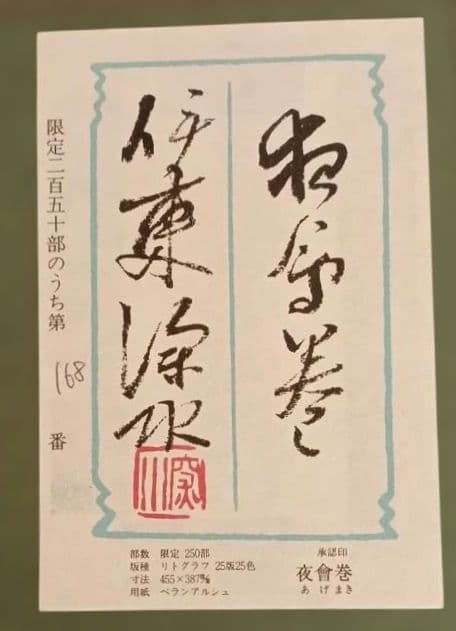 夜会巻
伊東深水
限定二百五十部のうち第 168 番
部数 限定 250部
版種 リトグラフ 25版25色
寸法 455×387㎜
用紙 ベランアルシュ
承認印
夜會巻
あげまき